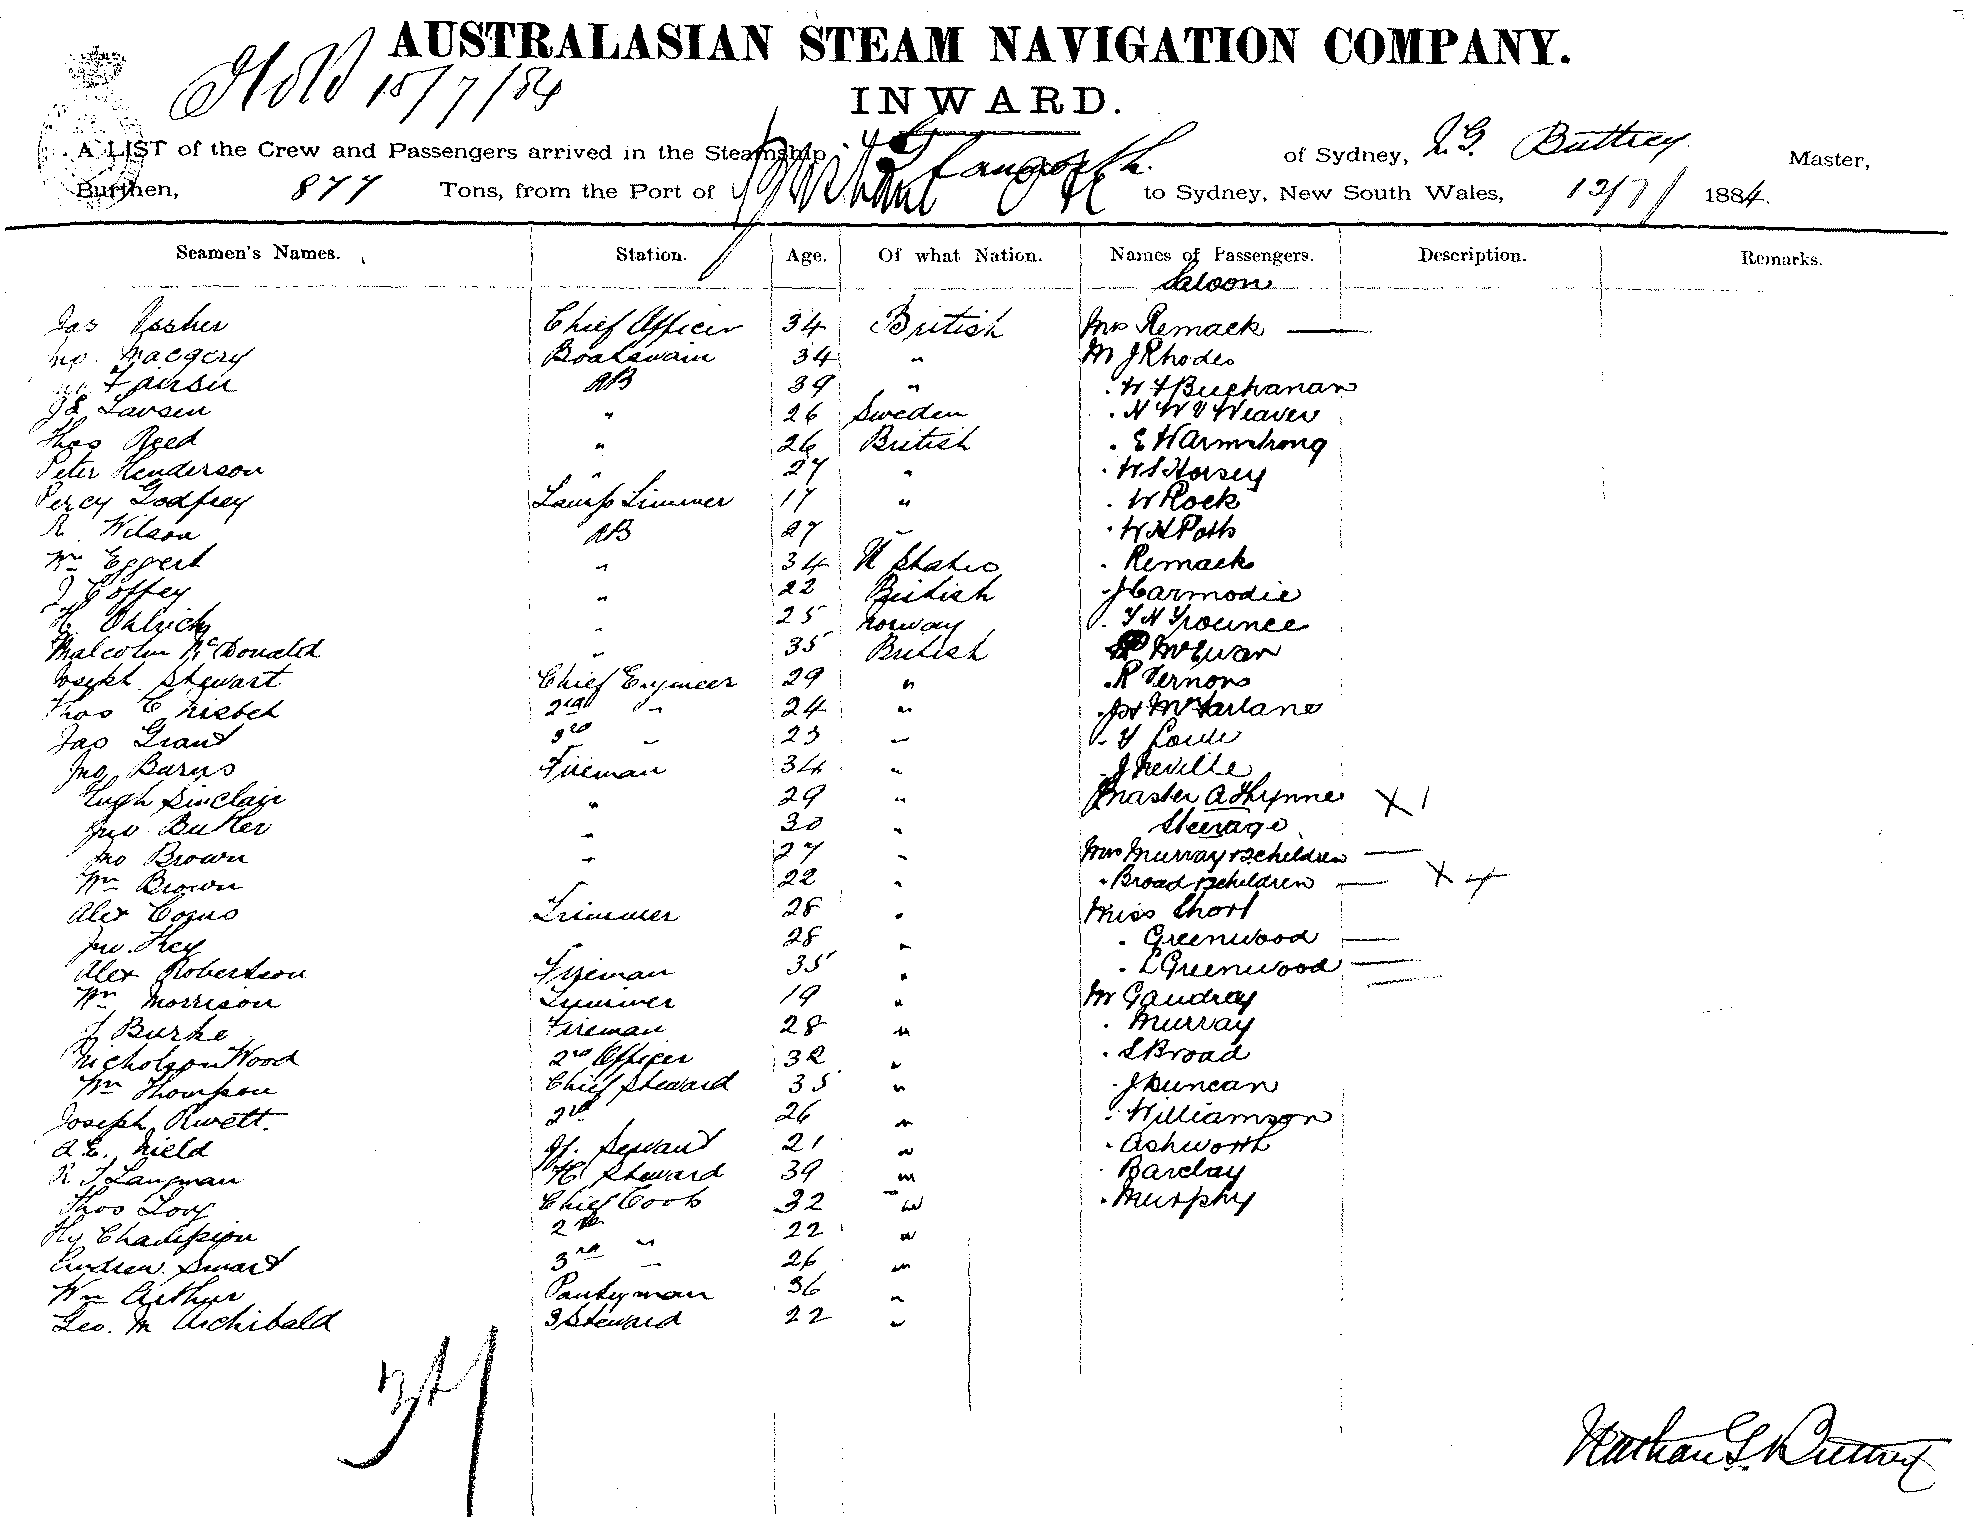 AUSTRALASIAN STEAM NAVIGATION COMPANY.
15/7/84
INWARD.
A LIST of the Crew and Passengers arrived in the Steamship of Sydney, Buttrey Master,
Burthen, 877 Tons, from the Port of to Sydney, New South Wales, 12/7/ 1884.
Seamen's Names. Station. Age. Of what Nation. Names of Passengers. Description. Remarks.
Saloon
Jas Ussher Chief Officer 34 British Mrs Remack
Boatswain 34 " Mr J Rhodes
AB 39 " " Buchanan
Larsen " 26 Sweden " Weaver
Thos Reed " 26 British " E W Armstrong
Peter Henderson " 27 " " Horsey
Percy Godfrey Lamp Trimmer 17 " " W Rock
R Wilson AB 27 " " W H Potts
Wm Eggert " 34 U States " Remack
J Coffey " 22 British " J Carmodie
H. " 25 Norway "
Malcolm McDonald " 35 British McEwan
Joseph Stewart Chief Engineer 29 " " R Vernon
Thos C Nisbet 2nd " 24 " " McFarlane
Jas Grant 3rd " 23 " "
Jno Burns Fireman 34 " " J Neville
Hugh Sinclair " 29 " Master A Thynne X 1
Jno Butler " 30 " Steerage
Jno Brown " 27 " Mrs Murray & 2 children
Wm Brown " 22 " " Broad & 2 children X 4
Alex Trimmer 28 " Miss Short
Jno. " 28 " " Greenwood
Alex Robertson Fireman 35 " " L Greenwood
Wm Morrison Trimmer 19 " Mr Gaudray
J Burke Fireman 28 " " Murray
Nicholson Wood 2nd Officer 32 " " S Broad
Wm Thompson Chief Steward 35 " " J Duncan
Joseph 2nd 26 " " Williamson
A E. Nield Servant 21 " " Ashworth
R J Langman Steward 39 " " Barclay
Thos Chief Cook 32 " " Murphy
Hy Champion 2nd " 22 "
Andrew Smart 3rd " 26 "
Wm Arthur Pantryman 36 "
Geo. M Archibald 3 Steward 22 "